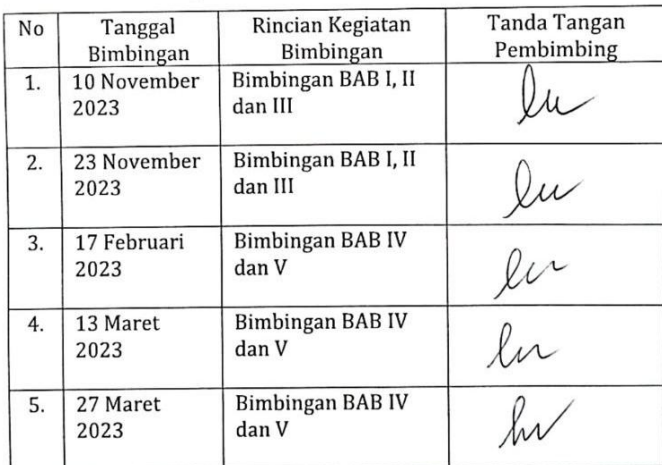 No Tanggal Bimbingan Rincian Kegiatan Bimbingan Tanda Tangan Pembimbing
1. 10 November 2023 Bimbingan BAB I, II dan III
2. 23 November 2023 Bimbingan BAB I, II dan III
3. 17 Februari 2023 Bimbingan BAB IV dan V
4. 13 Maret 2023 Bimbingan BAB IV dan V
5. 27 Maret 2023 Bimbingan BAB IV dan V